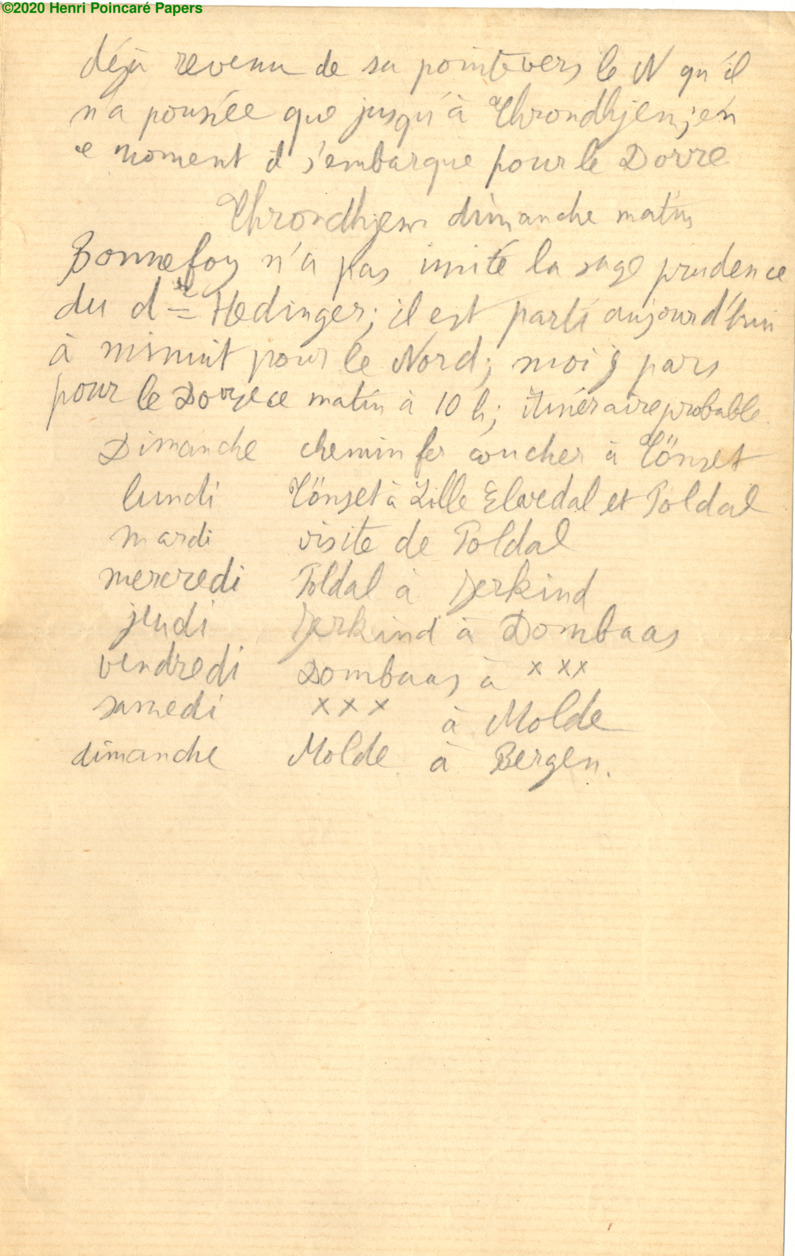 ©2020 Henri Poincaré Papers
déjà revenu de sa pointe vers le N qu'il
n'a poussée que jusqu'à Throndhjem; en
ce moment il s'embarque pour le Dovre
Throndhjem dimanche matin
Bonnefoy n'a pas imité la sage prudence
du dr Hedinger; il est parti aujourd'hui
à minuit pour le Nord; moi je pars
pour le Dovre ce matin à 10 h; itinéraire probable
Dimanche chemin fer coucher à Tönset
lundi Tönset à Lille Elvedal et Foldal
mardi visite de Foldal
mercredi Foldal à Jerkind
jeudi Jerkind à Dombaas
vendredi Dombaas à x x x
samedi x x x à Molde
dimanche Molde à Bergen.